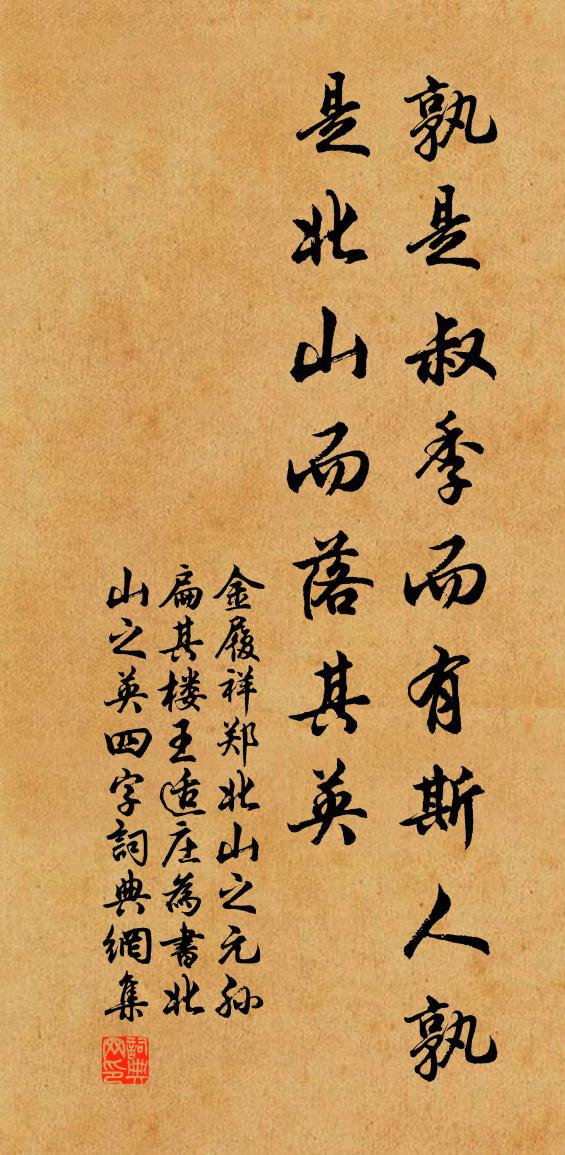 孰是叔季而有斯人孰
是北山而落其英
金履祥郑北山之元孙
扁其楼王适庄为書北
山之英四字詞典網集
詞典网印